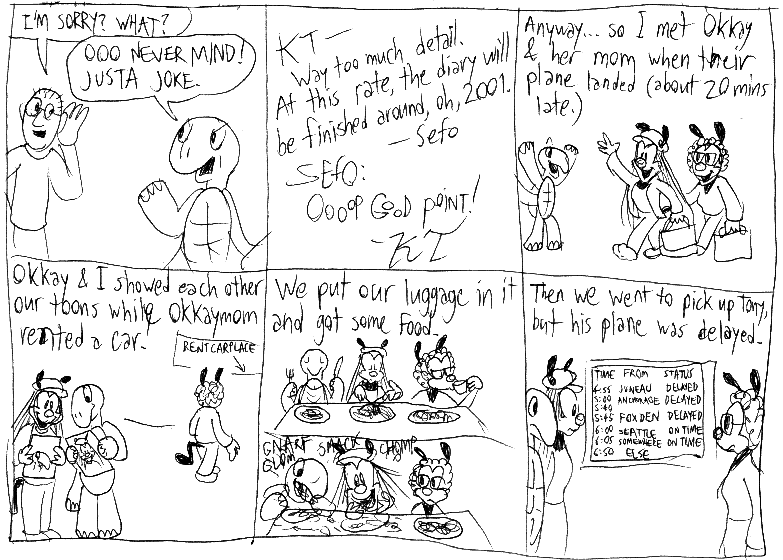 I'M SORRY? WHAT?
OOO NEVER MIND!
JUSTA JOKE.
KT—
Way too much detail.
At this rate, the diary will
be finished around, oh, 2001.
—Sefo
SEFO:
Oooop Good point!
-KT
Anyway... so I met Okkay
& her mom when their
plane landed (about 20 mins
late.)
Okkay & I showed each other
our toons while Okkaymom
rented a car.
RENTCARPLACE
We put our luggage in it
and got some food.
GNARF SMACK CHOMP
GLOM
Then we went to pick up Tony,
but his plane was delayed.
TIME FROM STATUS
4:55 JUNEAU DELAYED
5:00 ANCHORAGE DELAYED
5:40
5:45 FOXDEN DELAYED
6:00 SEATTLE ON TIME
6:05 SOMEWHERE ON TIME
6:50 ELSE